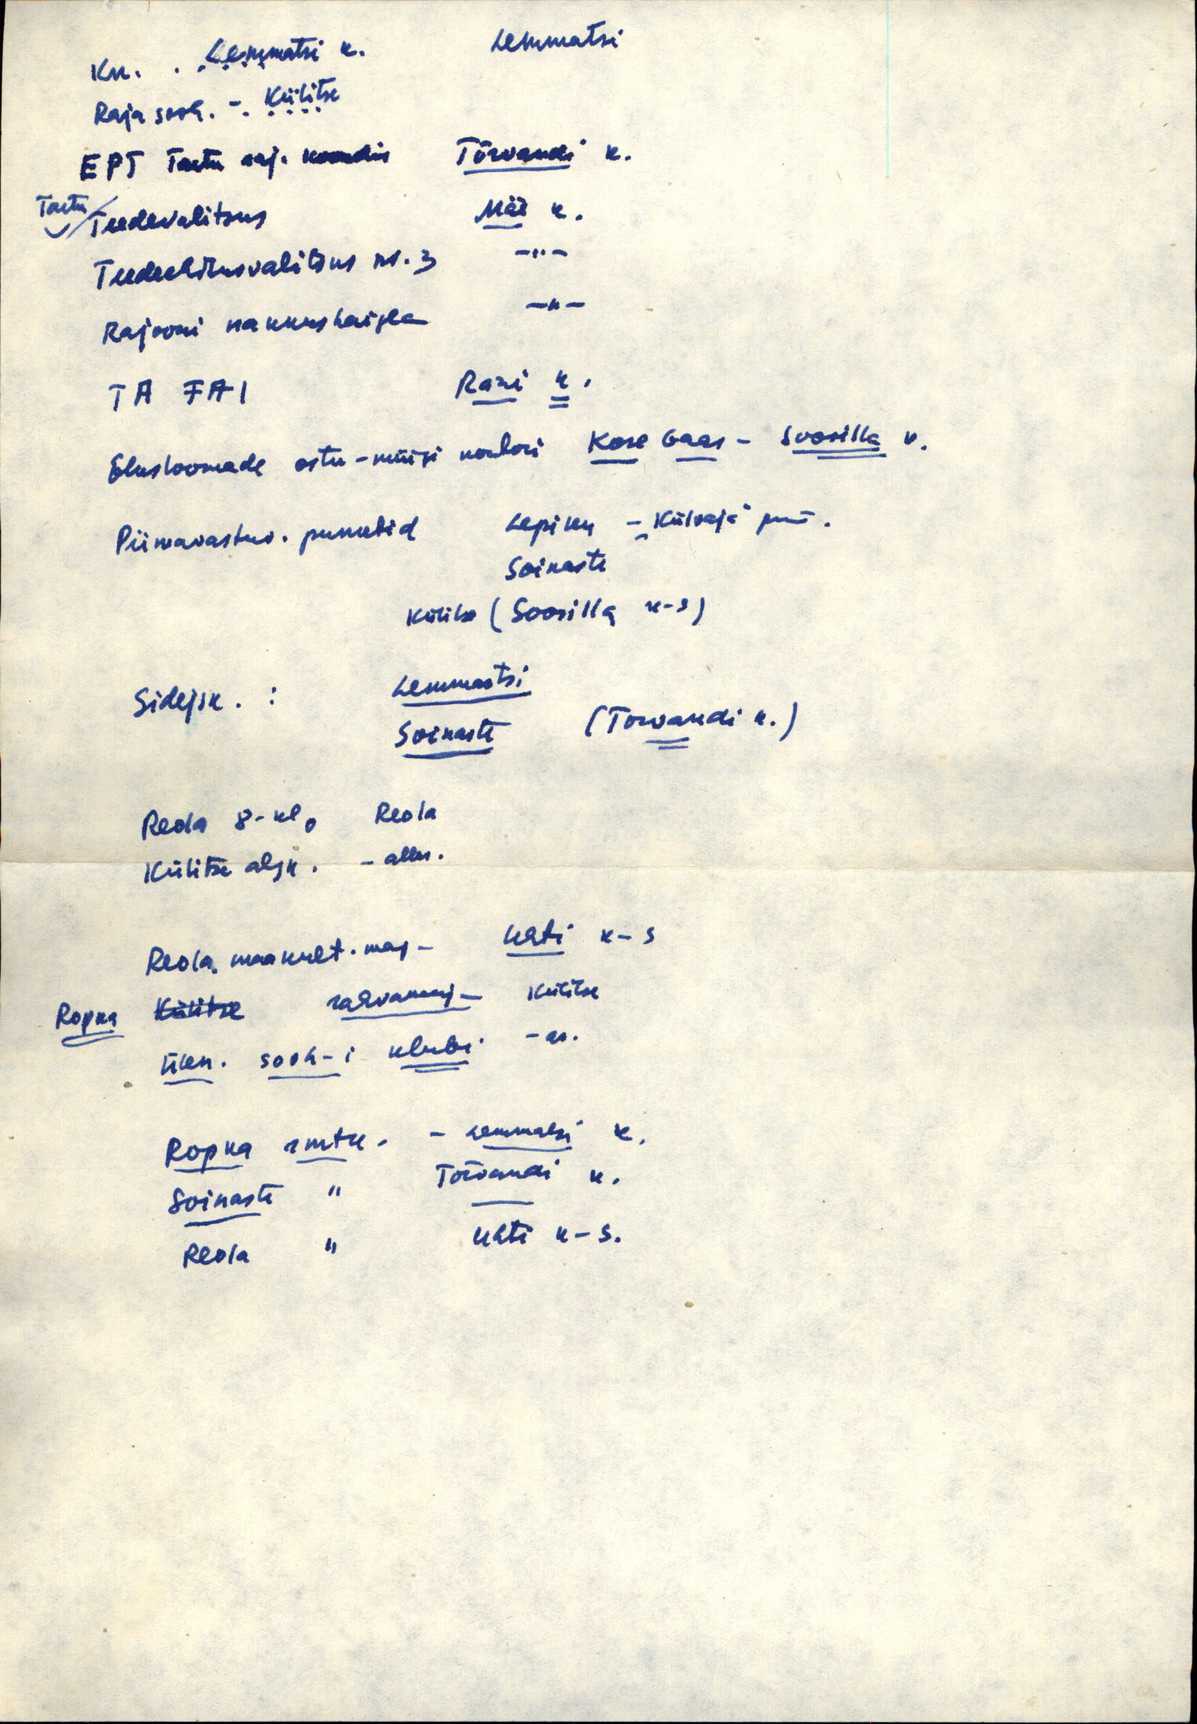 Kn. . Lemmatsi k. Lemmatsi
Raja sovh. - Külitse
EPT Tartu raj. koondis Tõrvandi k.
Tartu Teedevalitsus Mäe k.
Teedeehitusvalitsus nr. 3 -"-
Rajooni nakkushaigla -"-
TA FAI Räni k.
Elusloomade ostu-müügi kontori Kose baas - Soosilla k.
Piimavastuv. punktid Lepiku - "Külvaja" 
Soinaste
Külitse (Soosilla k-s)
Sidejsk. : Lemmatsi
Soinaste (Tõrvandi k.)
Reola 8-kl. Reola
Külitse algk. -
Reola maakult. maj - Uhti k-s
Ropka Külitse rahvamaj - Külitse
Üken. sovh-i klubi -
Ropka rmtk. - Lemmatsi k.
Soinaste " Tõrvandi k.
Reola " Uhti k-s.